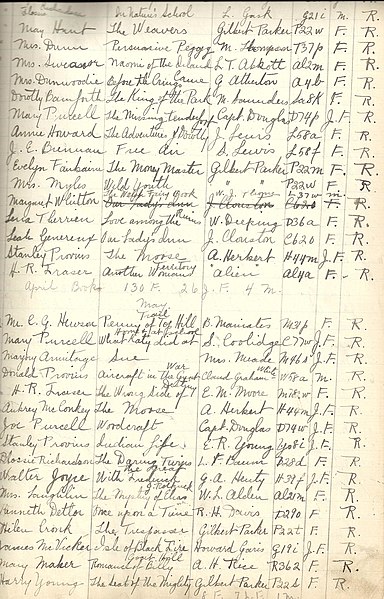 In Nature's School L. Gask g21i m. R.
May Hunt The Weavers Gilbert Parker P22w F. R.
Mrs. Dunn Persuasive Peggy M. Thompson T37p F. R.
Mrs. Naomi of the Island L. T. Abbott al2m F. R.
Mrs Dinwoodie Before the Gringo Came G. Atherton A4b F. R.
Dorothy Bamforth The King of the Park M. Saunders Sa8K F. R.
Mary Purcell The Missing tenderfoot Capt. Douglas D74p J.F. R.
Annie Howard The Adventures of Dorothy J. Lewis L58a F. R.
J. E. Brennan Free Air S. Lewis L58f F. R.
Evelyn Fairbairn The Money Master Gilbert Parker P22m F. R.
Mrs. Myles Wild Youth " " P22w F. R.
Margaret Whitton Our Lady's Inn J. Clouston C620 F. R.
Lena Therrien Love among the Ruins W. Deeping D36a F. R.
Leah Genereux Our Lady's Inn J. Clouston C620 F. R.
Stanley Provins The Moose A. Herbert H44m J.F. R.
H. R. Fraser Another Woman's Territory "Alien" al4a F. R.
April Books 130 F. 26 J.F. 4 m.
May
Mr. C. G. Hewson Penny of Top Hill Trail B. Maniates M31p F. R.
Mary Purcell What Katy did at Home & at School S. Coolidge C77w J.F. R.
Maphy Armitage Sue Mrs. Meade M46s J.F. R.
Donald Provins Aircraft in the Great War Claud Graham White W58a m. R.
H. R. Fraser The Wrong Side of Destiny E. M. Moore M78w F. R.
Aubrey McConkey The Moose A. Herbert H44m J.F. R.
Joe Purcell Woodcraft Capt. Douglas D74w J.F. R.
Stanley Provins Indian Life E. R. Young Yo8i J.F. R.
Blossie Richardson The Daring Twins L. F. Baum B28d F. R.
Walter Joyce With Frederick the Great G. A. Henty H39f J.F. R.
Mrs. Laughlin The Mystery of Choas W. L. Alden al2m F. R.
Kenneth Detlor Once upon a Time R. H. Davis D290 F. R.
Helen Cronk The Trespasser Gilbert Parker P22t F. R.
James McVicker Isle of Black Fire Howard Garis G19i J.F. R.
Mary Maker Romance of Billygoat Hill A. H. Rice R362 F. R.
Harry Young The Seat of the Mighty Gilbert Parker P22s F. R.